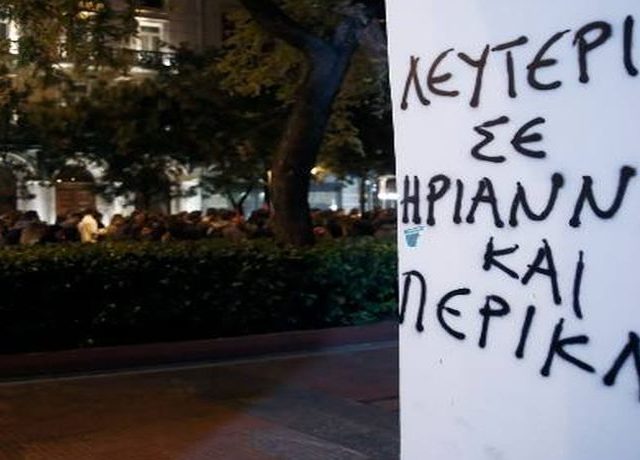 ΛΕΥΤΕΡΙ
ΣΕ
ΗΡΙΑΝΝ
ΚΑΙ
ΠΕΡΙΚΛ